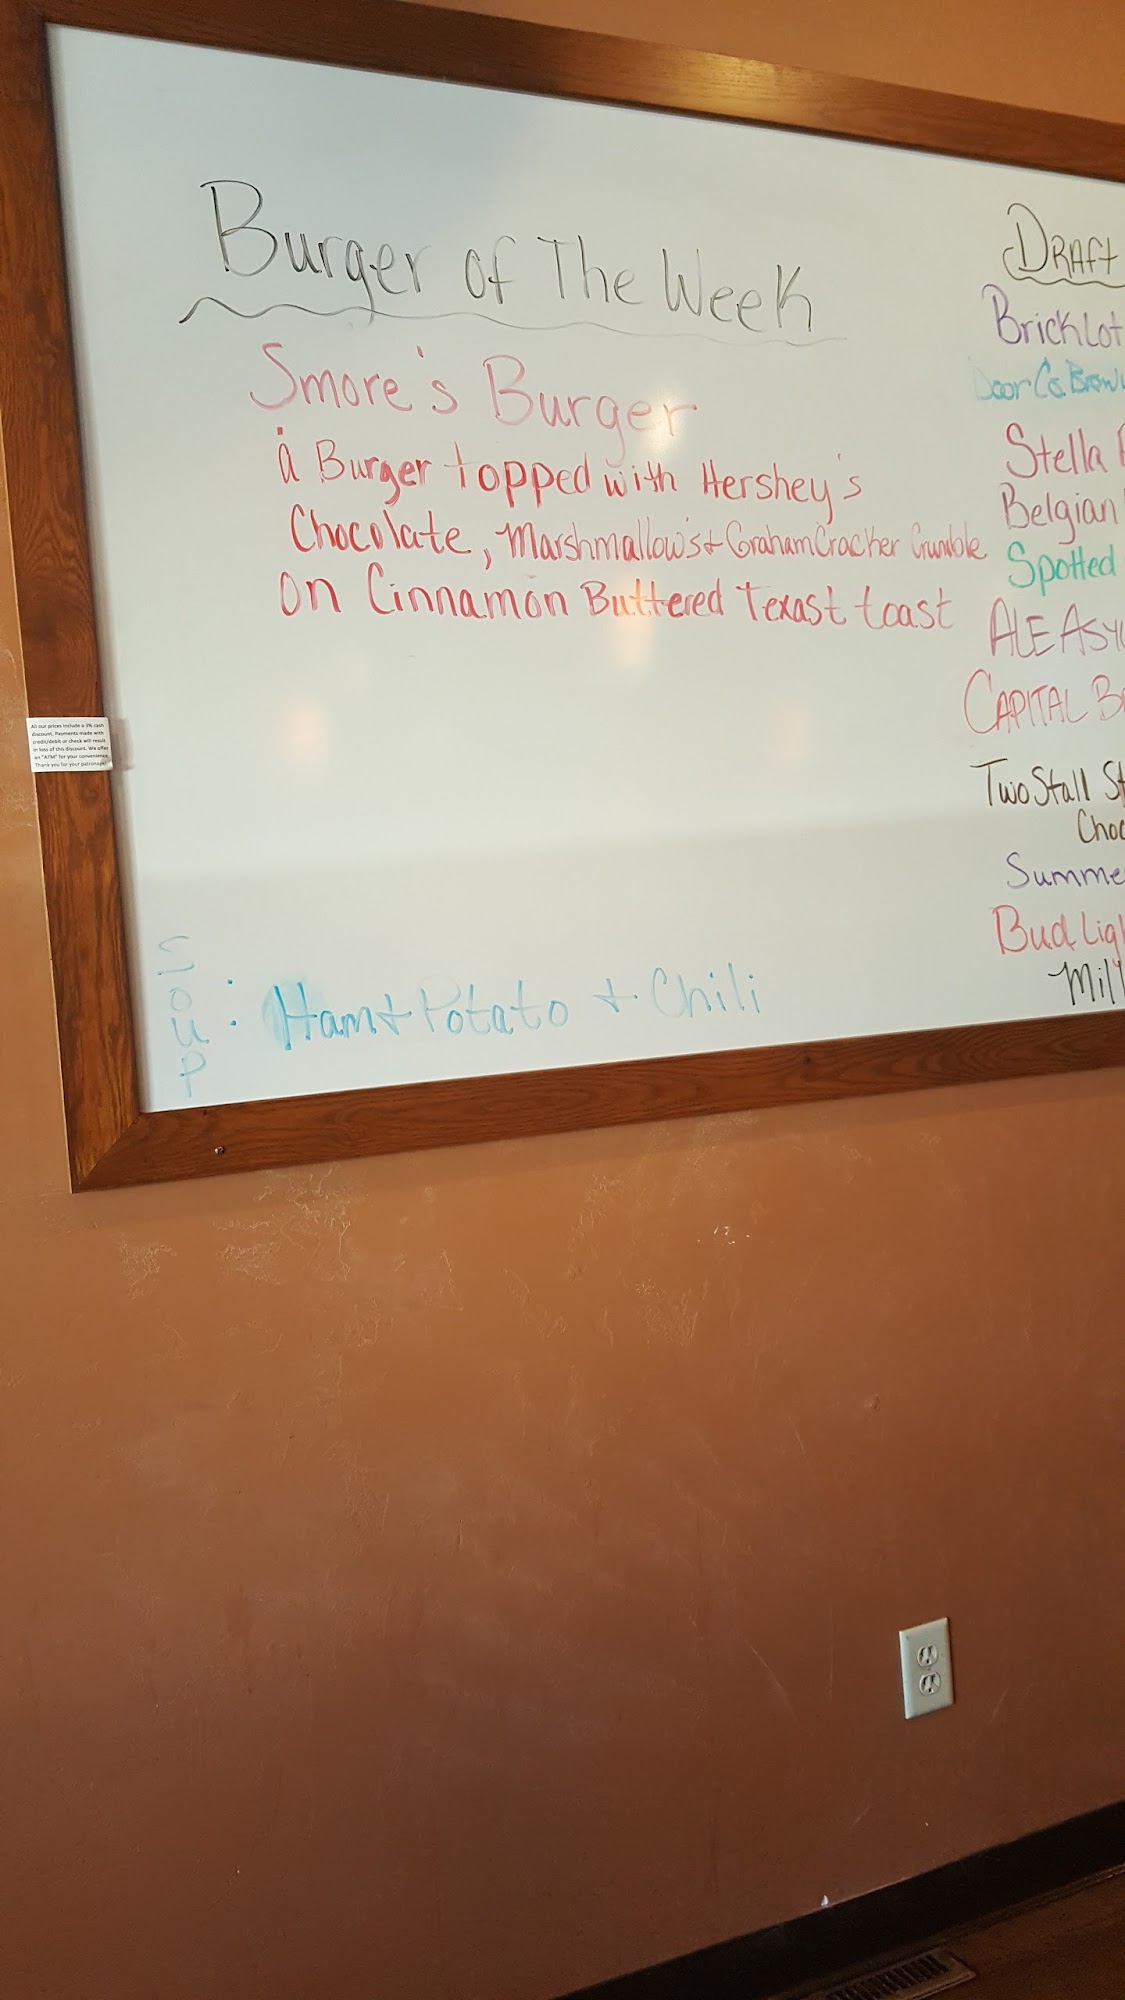 Burger of The Week
Smore's Burger
a Burger topped with Hershey's
Chocolate, Marshmallow's + Graham Cracker Crumble
on Cinnamon Buttered Texast toast
Soup : Ham + Potato + Chili
DRAFT
Brick Lot
Door Co. Brew
Stella
Belgian
Spotted
ALE ASY
CAPITAL
Two Stall St
Choc
Summe
Bud Lig
Mill
All our prices include a 3% cash
discount. Payments made with
credit/debit or check will result
in loss of this discount. We offer
an "ATM" for your convenience.
Thank you for your patronage!